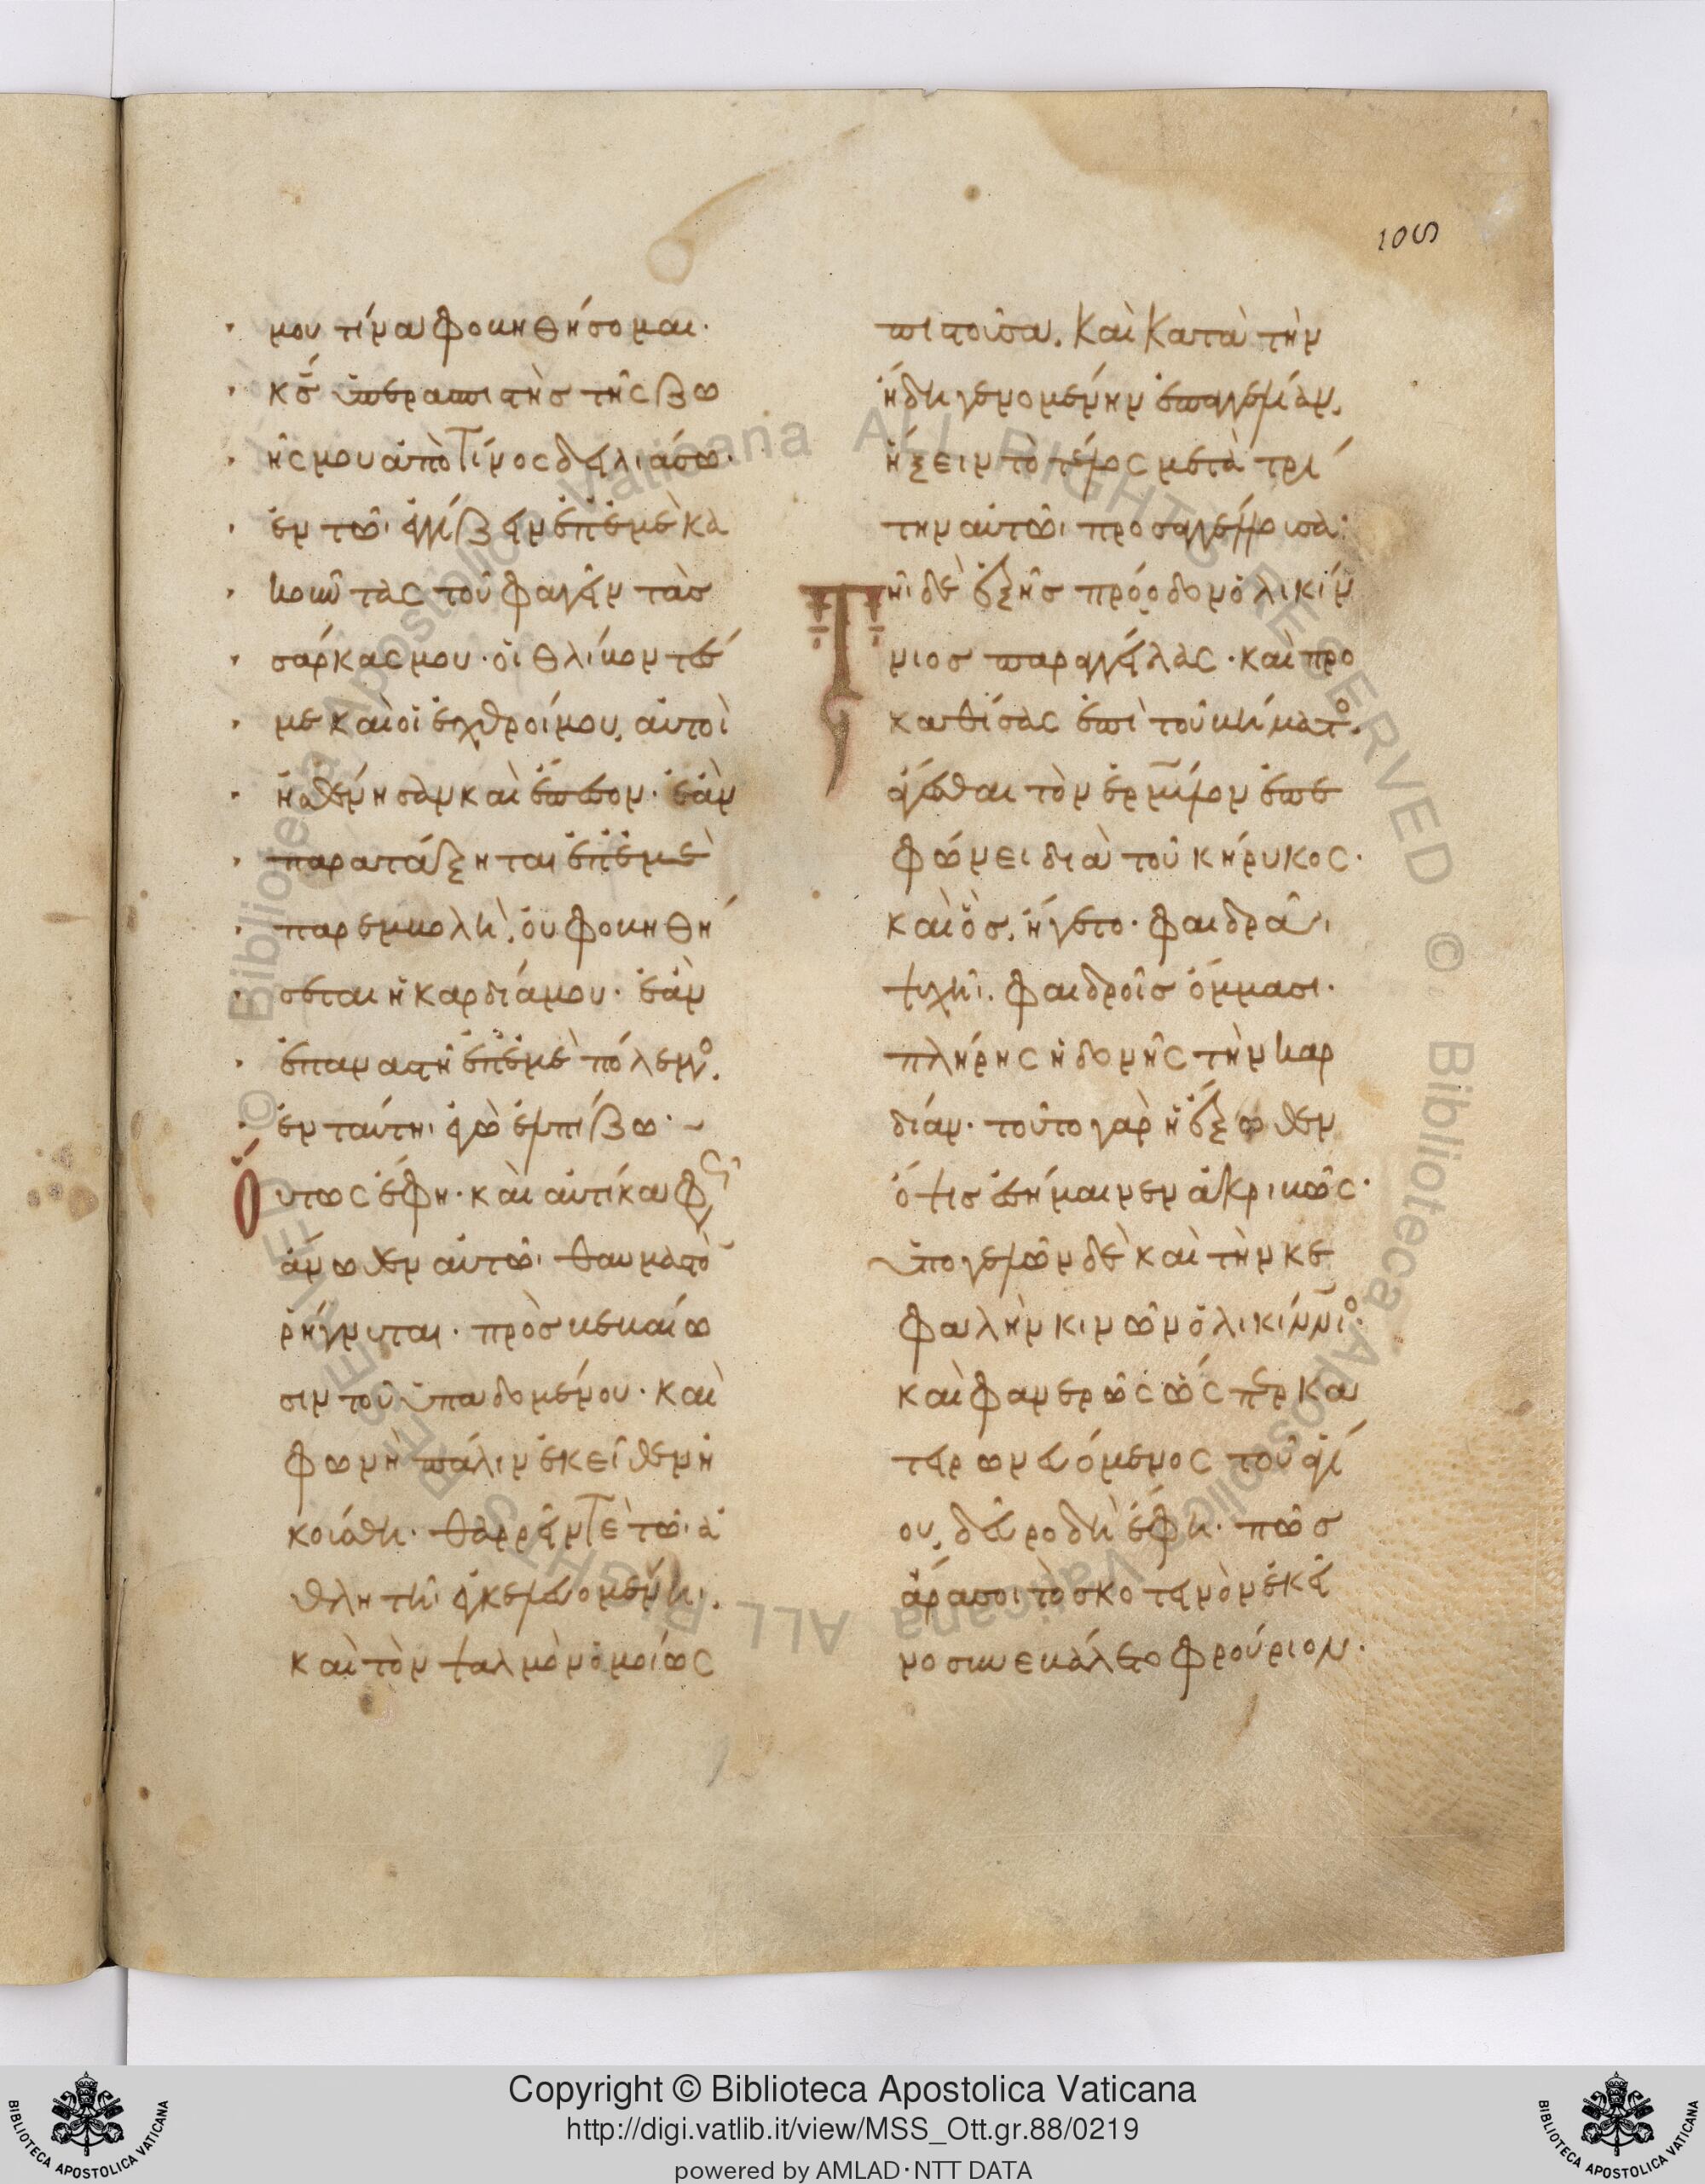 105
μου τίνα φοβηθήσομαι·
κ̅ς̅ ὑπερασπιστὴσ τῆς ζω
ῆς μου ἀπὸ τίνος δειλιάσω·
ἐν τῶι ἐγγίζειν ἐπ' ἐμὲ κα
κοῦντας τοῦ φαγεῖν τὰσ
σάρκας μου· οἱ θλίβοντέσ
με καὶ οἱ ἐχθροί μου, αὐτοὶ
ἠσθένησαν καὶ ἔπεσον· ἐὰν
παρατάξηται ἐπ' ἐμὲ
παρεμβολὴ, οὐ φοβηθή
σεται ἡ καρδία μου· ἐὰν
ἐπαναστῆ ἐπ' ἐμὲ πόλεμος,
ἐν ταύτηι ἐγὼ ἐλπίζω·
Οὕτως ἔφη· καὶ αὐτίκα
ἄνωθεν αὐτῶι θαυμαστὸν
ῥήγνυται· πρὸσ βεβαίω
σιν τοῦ ὑπαδομένου· καὶ
φωνὴ πάλιν ἐκεῖθεν ἠ
κούσθη· θαρρεῖν τε τῶι ἀ
θλητῆι ἐγκελευομένη.
καὶ τὸν ψαλμὸν ὁμοίως
πιστοῦσα. καὶ κατὰ τὴν
ἤδη γενομένην ἐπαγγελίαν,
ἥξειν τὸ τέλος μετὰ τρί
την αὐτῶι προσαγγέλλουσα·
Τῆι δὲ ἑξῆσ πρόοδον ὁ λικίν
νιοσ παραγγείλας· καὶ προ
καθίσας ἐπὶ τοῦ βήματος,
ἄγεσθαι τὸν ἐρμύλον ἐπε
φώνει διὰ τοῦ κήρυκος·
καὶ ὃσ, ἤγετο· φαιδρᾶι
ψυχῆι. φαιδροῖσ ὄμμασι·
πλήρης ἡδονῆς τὴν καρ
δίαν· τοῦτο γὰρ ἡ ἔξωθεν
ὄψισ ἐσήμαινεν ἀκριβῶς·
ὑπογελῶν δὲ καὶ τὴν κε
φαλὴν κινῶν ὁ λικίννιος·
καὶ φανερῶς ὥς περ κα
τειρωνευόμενος τοῦ ἁγί
ου, δεῦρο δὴ ἔφη· πῶσ
ἆρά σοι τὸ σκοτεινὸν ἐκεῖ
νο συνεβάλετο φρούριον·
Copyright © Biblioteca Apostolica Vaticana
http://digi.vatlib.it/view/MSS_Ott.gr.88/0219
powered by AMLAD·NTT DATA